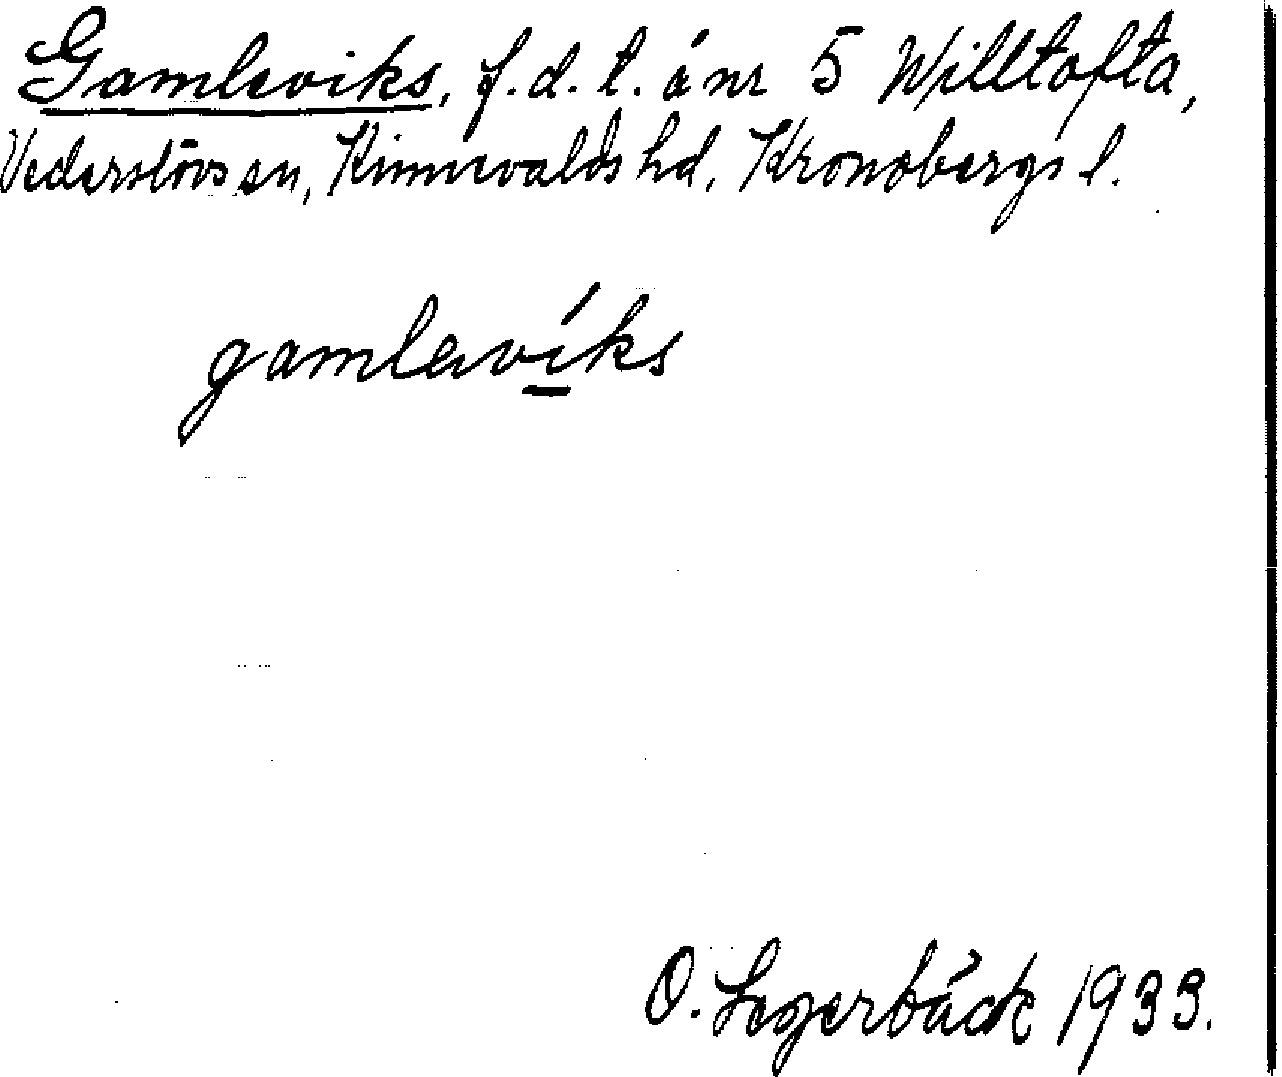 Gamleviks, f.d. t. å nr 5 Willtofta,
Vederslövs sn, Kinnevalds hd, Kronobergs l.
gamlavíks
O. Legerbäck 1933.